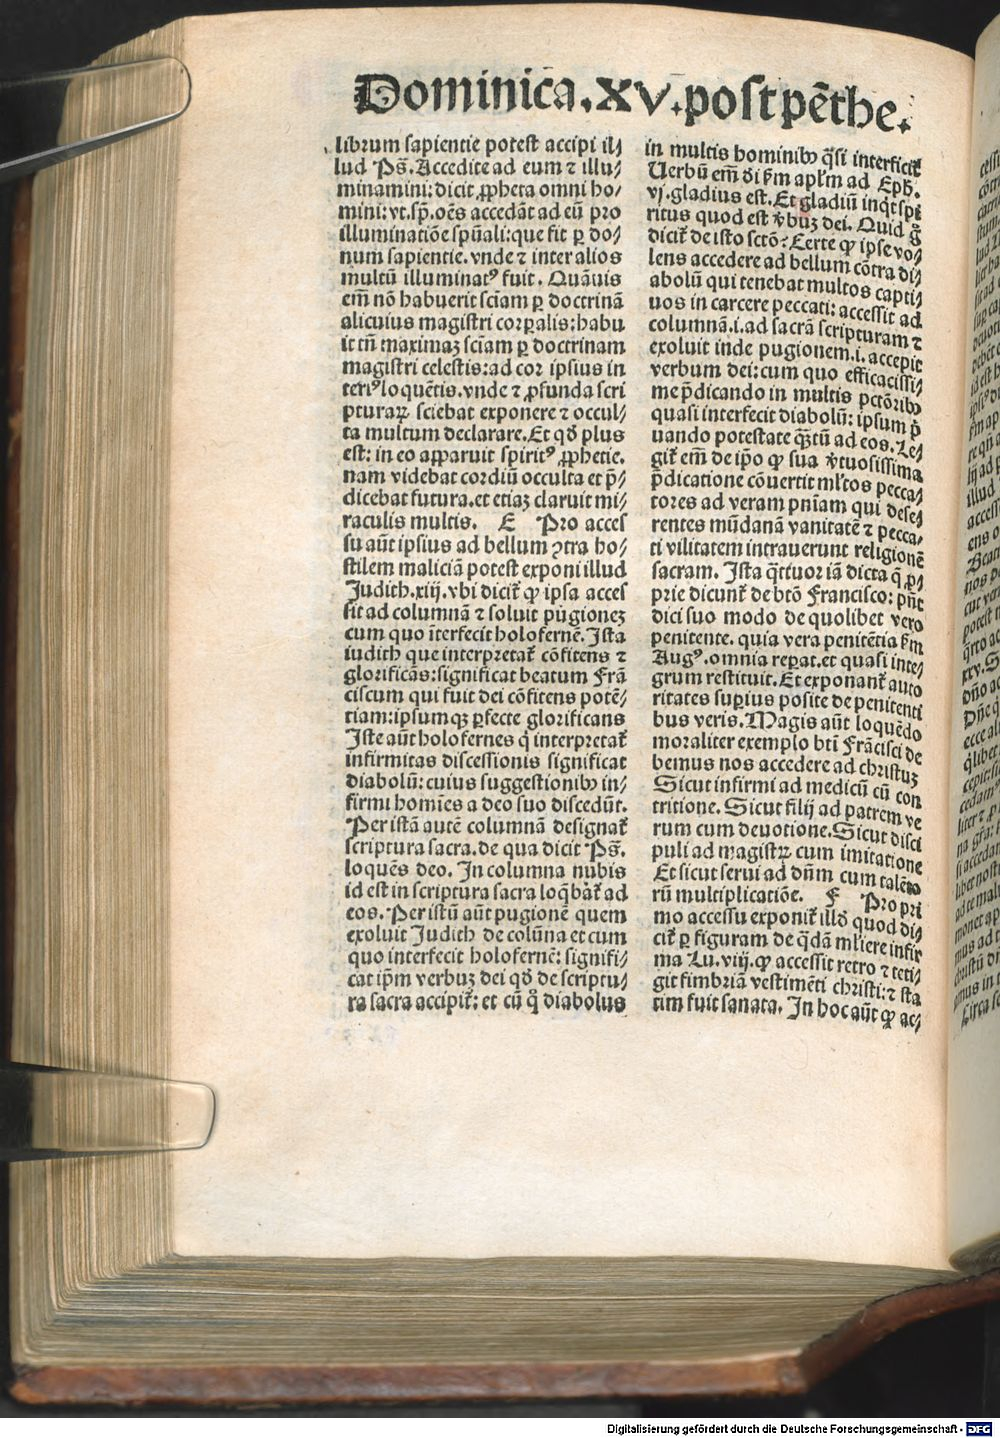 Dominica.XV.post pẽthe.
librum sapientie potest accipi il⸗
lud Ps̃. Accedite ad eum ⁊ illu⸗
minamini: dicit ꝓpheta omni ho⸗
mini: vt.sp̃. oẽs accedãt ad eũ pro
illuminatiõe spũali: que fit ꝑ do⸗
num sapientie. vnde ⁊ inter alios
multũ illuminatꝰ fuit. Quãuis
em̃ nõ habuerit sciam ꝑ doctrinã
alicuius magistri corꝑalis: habu
it tñ maximaꝫ sciam ꝑ doctrinam
magistri celestis: ad cor ipsius in
teriꝰ loquẽtis. vnde ⁊ ꝓfunda scri
pturaꝝ sciebat exponere ⁊ occul⸗
ta multum declarare. Et qð plus
est: in eo apparuit spiritꝰ ꝓphetie.
nam videbat cordiũ occulta et p̃⸗
dicebat futura. et etiaꝫ claruit mi⸗
raculis multis. E Pro acces
su aũt ipsius ad bellum ꝯtra ho⸗
stilem maliciã potest exponi illud
Judith. xiij. vbi dicit᷑ ꝙ ipsa acces
sit ad columnã ⁊ soluit pugioneꝫ
cum quo ĩterfecit holofernẽ. Ista
iudith que interpretat᷑ cõfitens ⁊
glorificãs: significat beatum Frã
ciscum qui fuit dei cõfitens potẽ⸗
tiam: ipsumqꝫ ꝑfecte glorificans
Iste aũt holofernes q̇ interpretat᷑
infirmitas discessionis significat
diabolũ: cuius suggestionibꝰ in⸗
firmi homĩes a deo suo discedũt.
Per istã autẽ columnã designat᷑
scriptura sacra. de qua dicit Ps̃.
loquẽs deo. In columna nubis
id est in scriptura sacra loq̃bat᷑ ad
eos. Per istũ aũt pugionẽ quem
exoluit Judith de colũna et cum
quo interfecit holofernẽ: signifi⸗
cat ip̃m verbuꝫ dei qð de scriptu⸗
ra sacra accipit᷑: et cũ q̇ diabolus
in multis hominibꝰ q̃si interficit᷑
Uerbũ em̃ di ẜm apl̃m ad Eph̃.
vj. gladius est. Et gladiũ inq̃t spi
ritus quod est v̾buꝫ dei. Quid g̊
dicit᷑ de isto sctõ? Certe ꝙ ipse vo⸗
lens accedere ad bellum cõtra di⸗
abolũ qui tenebat multos capti⸗
uos in carcere peccati: accessit ad
columnã. i. ad sacrã scripturam ⁊
exoluit inde pugionem. i. accepit
verbum dei: cum quo efficacissi⸗
me p̃dicando in multis pctõribꝰ
quasi interfecit diabolũ: ipsum p̃
uando potestate q̃ꝫtũ ad eos. Le⸗
git᷑ em̃ de ip̃o ꝙ sua v̾tuosissima
p̃dicatione cõuertit ml̃tos pecca⸗
tores ad veram pniam qui dese⸗
rentes mũdanã vanitatẽ ⁊ pecca⸗
ti vilitatem intrauerunt religionẽ
sacram. Ista q̃ttuor iã dicta q̃ ꝓ⸗
prie dicunt᷑ de btõ Francisco: pñt
dici suo modo de quolibet vero
penitente. quia vera penitẽtia ẜm
Augꝰ. omnia reꝑat. et quasi inte⸗
grum restituit. Et exponant᷑ auto
ritates suꝑius posite de penitenti
bus veris. Magis aũt loquẽdo
moraliter exemplo bti Frãcisci de
bemus nos accedere ad christuꝫ
Sicut infirmi ad medicũ cũ con
tritione. Sicut filij ad patrem ve
rum cum deuotione. Sicut disci
puli ad magistꝝ cum imitatione
Et sicut serui ad dñm cum talẽto
rũ multiplicatiõe. F Pro pri
mo accessu exponit᷑ illð quod di⸗
cit᷑ ꝑ figuram de q̃dã mliere infir
ma Lu. viij. ꝙ accessit retro ⁊ teti⸗
git fimbriã vestimẽti christi: ⁊ sta
tim fuit sanata. In hoc aũt ꝙ ac⸗
Digitalisierung gefördert durch die Deutsche Forschungsgemeinschaft - DFG